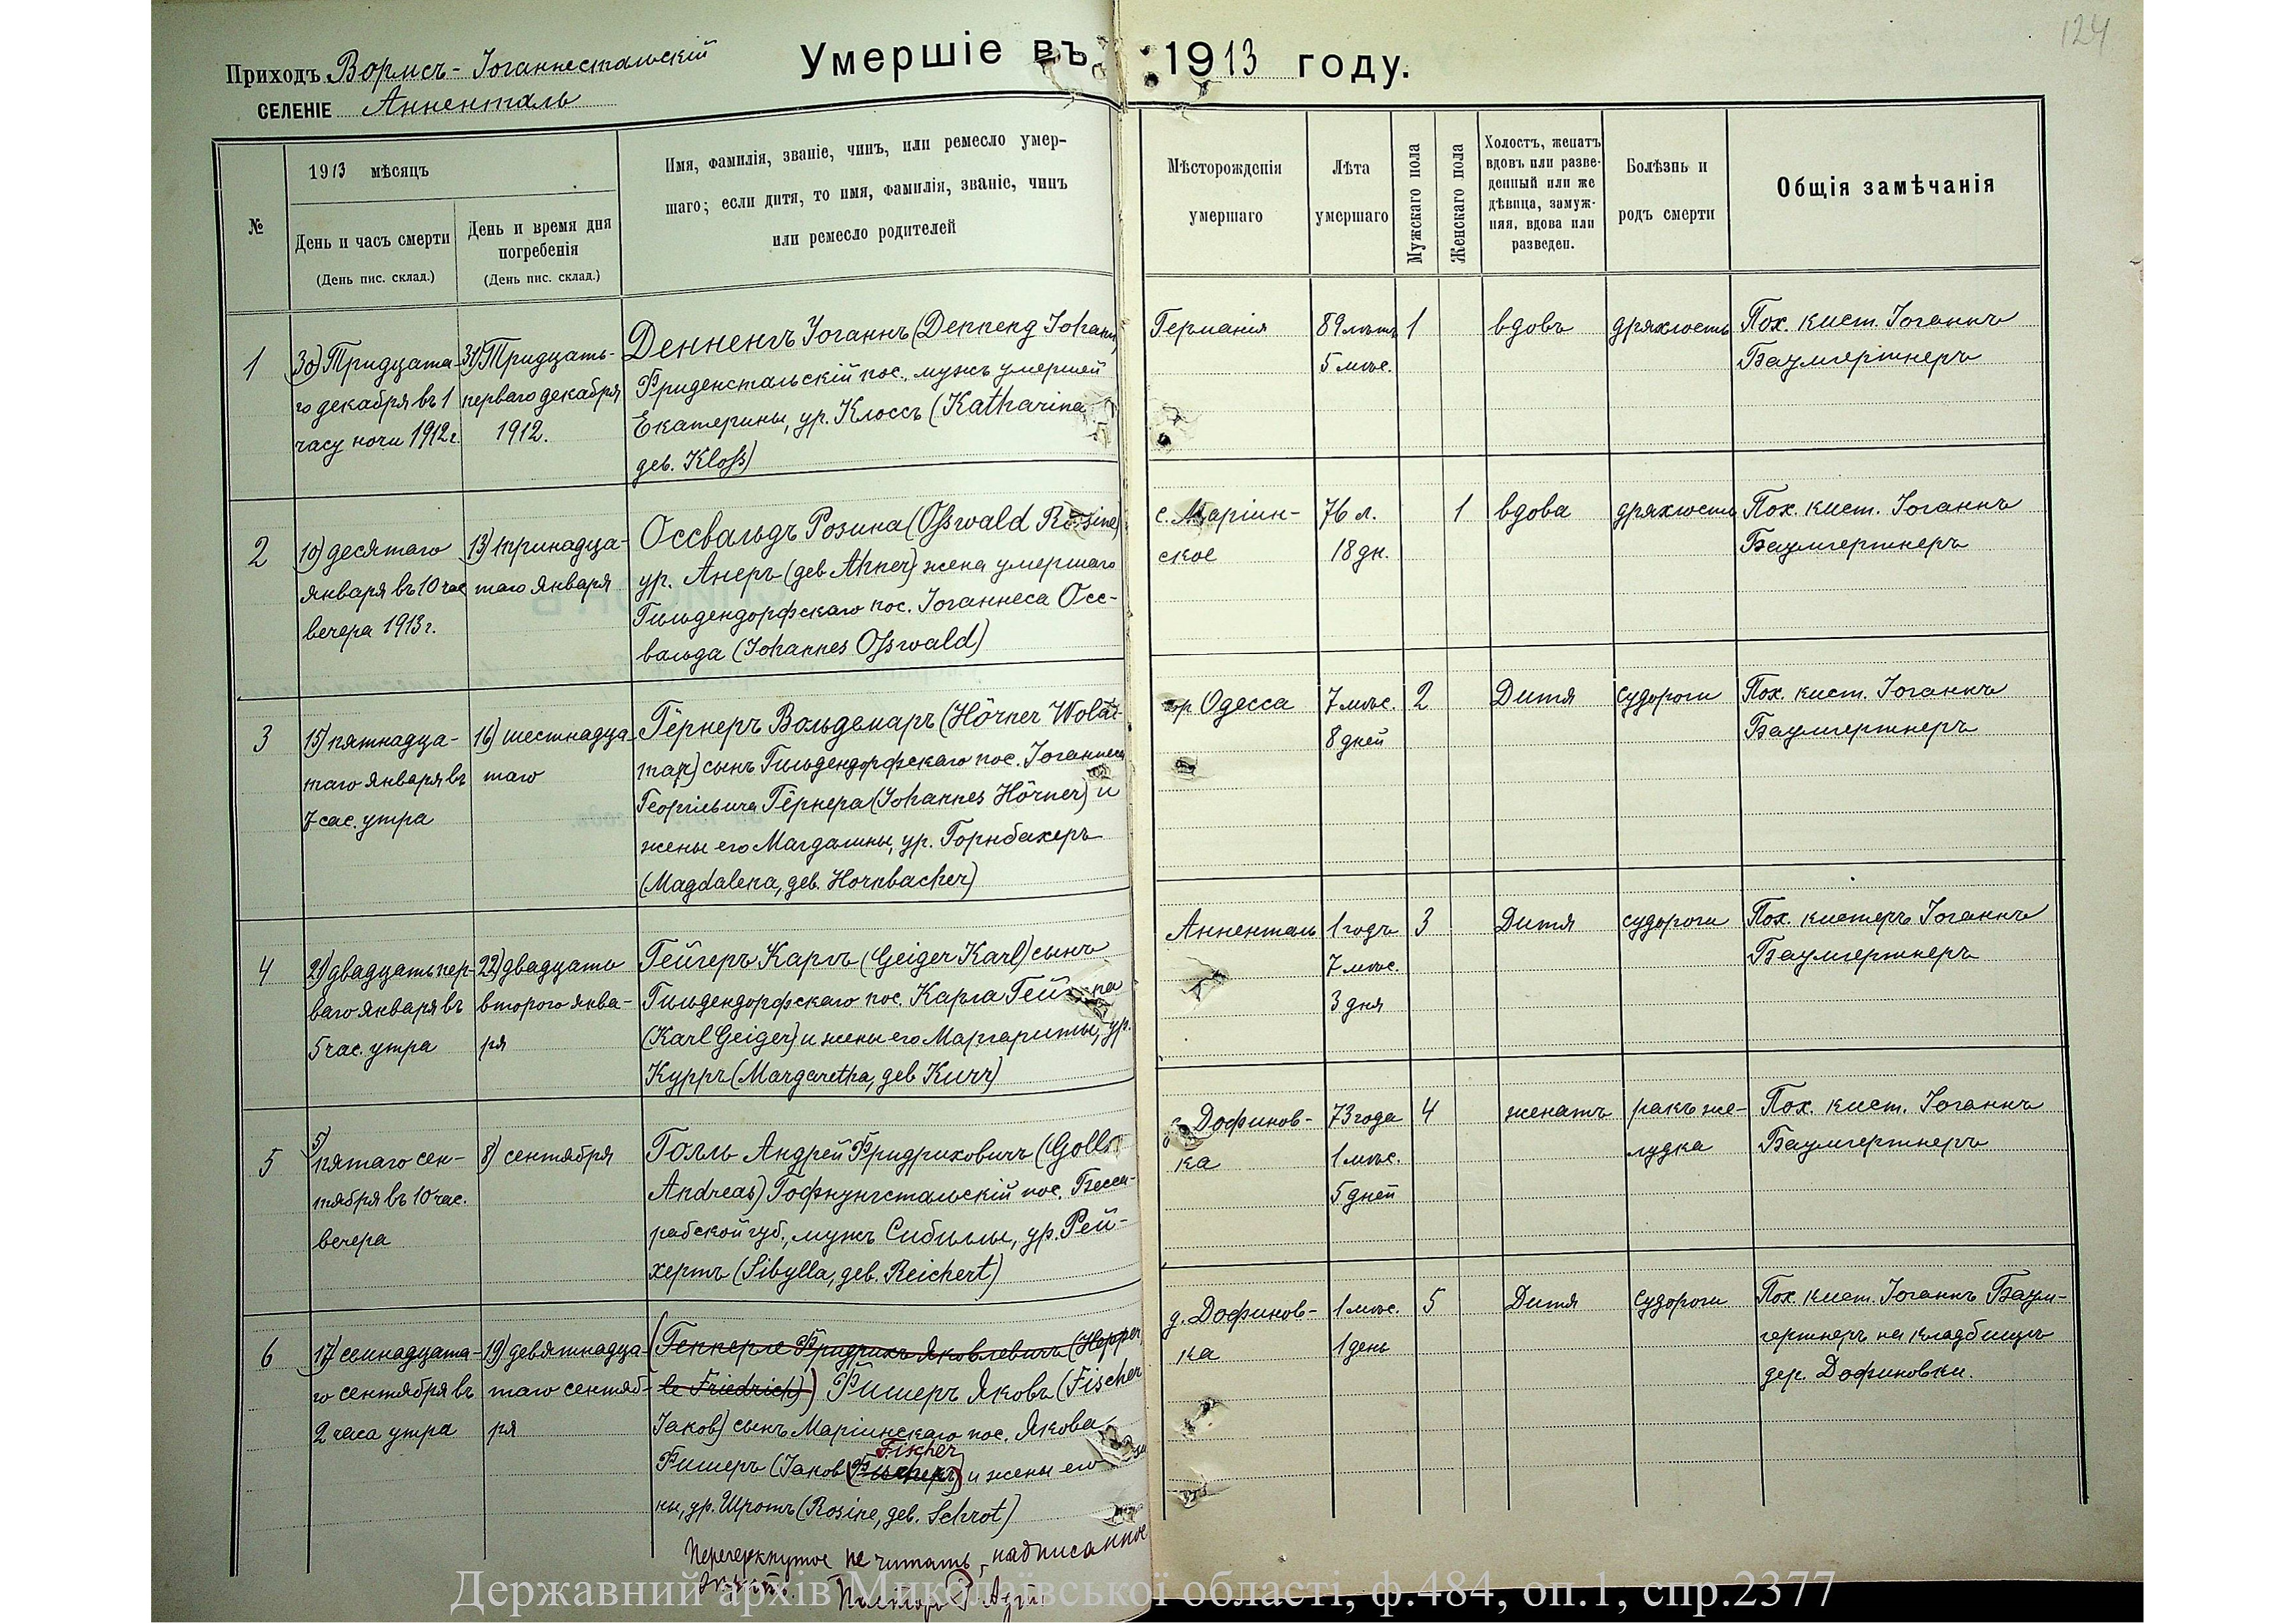 124
Приходъ Вормсъ-Іоганнестальскій
СЕЛЕНІЕ Анненталь
Умершіе въ 1913 году.
№
1913 мѣсяцъ
День и часъ смерти
(День пис. склад.)
День и время дня
погребенія
(День пис. склад.)
Имя, фамилія, званіе, чинъ, или ремесло умер-
шаго; если дитя, то имя, фамилія, званіе, чинъ
или ремесло родителей
Мѣсторожденія
умершаго
Лѣта
умершаго
Мужскаго пола
Женскаго пола
Холостъ, женатъ
вдовъ или разве-
денный или же
дѣвица, замуж-
няя, вдова или
разведен.
Болѣзнь и
родъ смерти
Общія замѣчанія
1
30) Тридцата-
го декабря въ 1
часу ночи 1912 г.
31) Тридцать-
перваго декабря
1912.
Денненгъ Іоганнъ (Dennend Johann)
Фриденстальскій пос., мужъ умершей
Екатерины, ур. Клоссъ (Katharina
дев. Kloß)
Германія
89 лѣтъ
5 мѣс.
1
вдовъ
дряхлость
Пох. кист. Іоганнъ
Баумгертнеръ
2
10) десятаго
января въ 10 час.
вечера 1913 г.
13) тринадца-
таго января
Оссвальдъ Розина (Oßwald Rosine)
ур. Анеръ (дев. Ahner) жена умершаго
Гильдендорфскаго пос. Іоганнеса Осс-
вальда (Johannes Oßwald)
с. Маріин-
ское
76 л.
18 дн.
1
вдова
дряхлость
Пох. кист. Іоганнъ
Баумгертнеръ
3
15) пятнадца-
таго января въ
7 час. утра
16) шестнадца-
таго
Гёрнеръ Вольдемаръ (Hörner Wolde-
mar) сынъ Гильдендорфскаго пос. Іоганнеса
Георгіевича Гёрнера (Johannes Hörner) и
жены его Магдалины, ур. Горнбахеръ
(Magdalena, дев. Hornbacher)
гор. Одесса
7 мѣс.
8 дней
2
Дитя
судороги
Пох. кист. Іоганнъ
Баумгертнеръ
4
21) двадцать пер-
ваго января въ
5 час. утра
22) двадцать
второго янва-
ря
Гейгеръ Карлъ (Geiger Karl) сынъ
Гильдендорфскаго пос. Карла Гейгера
(Karl Geiger) и жены его Маргариты, ур.
Курръ (Margaretha, дев. Kurr)
Анненталь
1 годъ
7 мѣс.
3 дня
3
Дитя
судороги
Пох. кистеръ Іоганнъ
Баумгертнеръ
5
5) пятаго сен-
тября въ 10 час.
вечера
8) сентября
Голль Андрей Фридриховичъ (Goll
Andreas) Гофнунгстальскій пос. Бесса-
рабской губ., мужъ Сибиллы, ур. Рей-
хертъ (Sibylla, дев. Reichert)
д. Дофинов-
ка
73 года
1 мѣс.
5 дней
4
женатъ
ракъ же-
лудка
Пох. кист. Іоганнъ
Баумгертнеръ
6
17) семнадцата-
го сентября въ
2 часа утра
19) девятнадца-
таго сентяб-
ря
(Геккерле Фридрихъ Яковлевичъ (Hepper
le Friedrich)) Фишеръ Яковъ (Fischer
Jakob) сынъ Маріинскаго пос. Якова
Fischer
Фишеръ (Jakob (Фишеръ) и жены его
ны, ур. Шротъ (Rosine, дев. Schrot)
д. Дофинов-
ка
1 мѣс.
1 день
5
Дитя
судороги
Пох. кист. Іоганнъ Баум-
гертнеръ на кладбищѣ
дер. Дофиновки.
Перечеркнутое не читать, надписанное
Пасторъ
Державний архів Миколаївської області, ф.484, оп.1, спр.2377